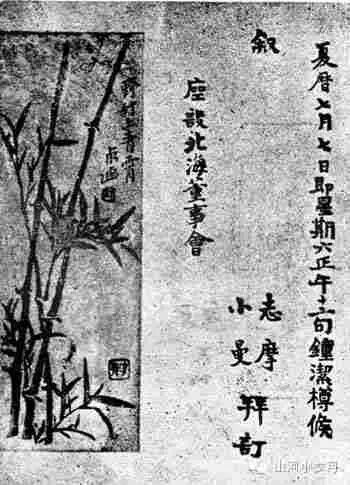 夏曆七月七日即星期六正午十二句鐘潔樽候
叙
座設北海董事會
志摩
小曼
拜訂
青霄
山河小歲月